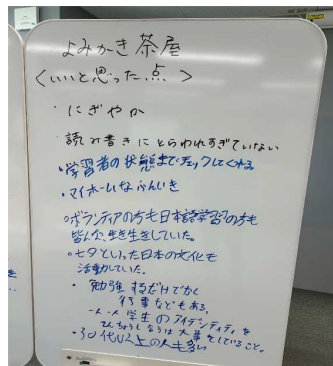 よみかき茶屋
〈いいと思った点〉
・にぎやか
・読み書きにとらわれすぎていない
・学習者の状態までチェックしてくれる。
・マイホームなふんいき
・ボランティアの方も日本語学習の方も
皆んな、生き生きしていた。
・七夕といった日本の文化も
活動していた。
・勉強だけでなく
行事などもある。
・一人一人学生のアイデンティティを
そんちょうしようは大事としていること。
・30代以上の人も多い